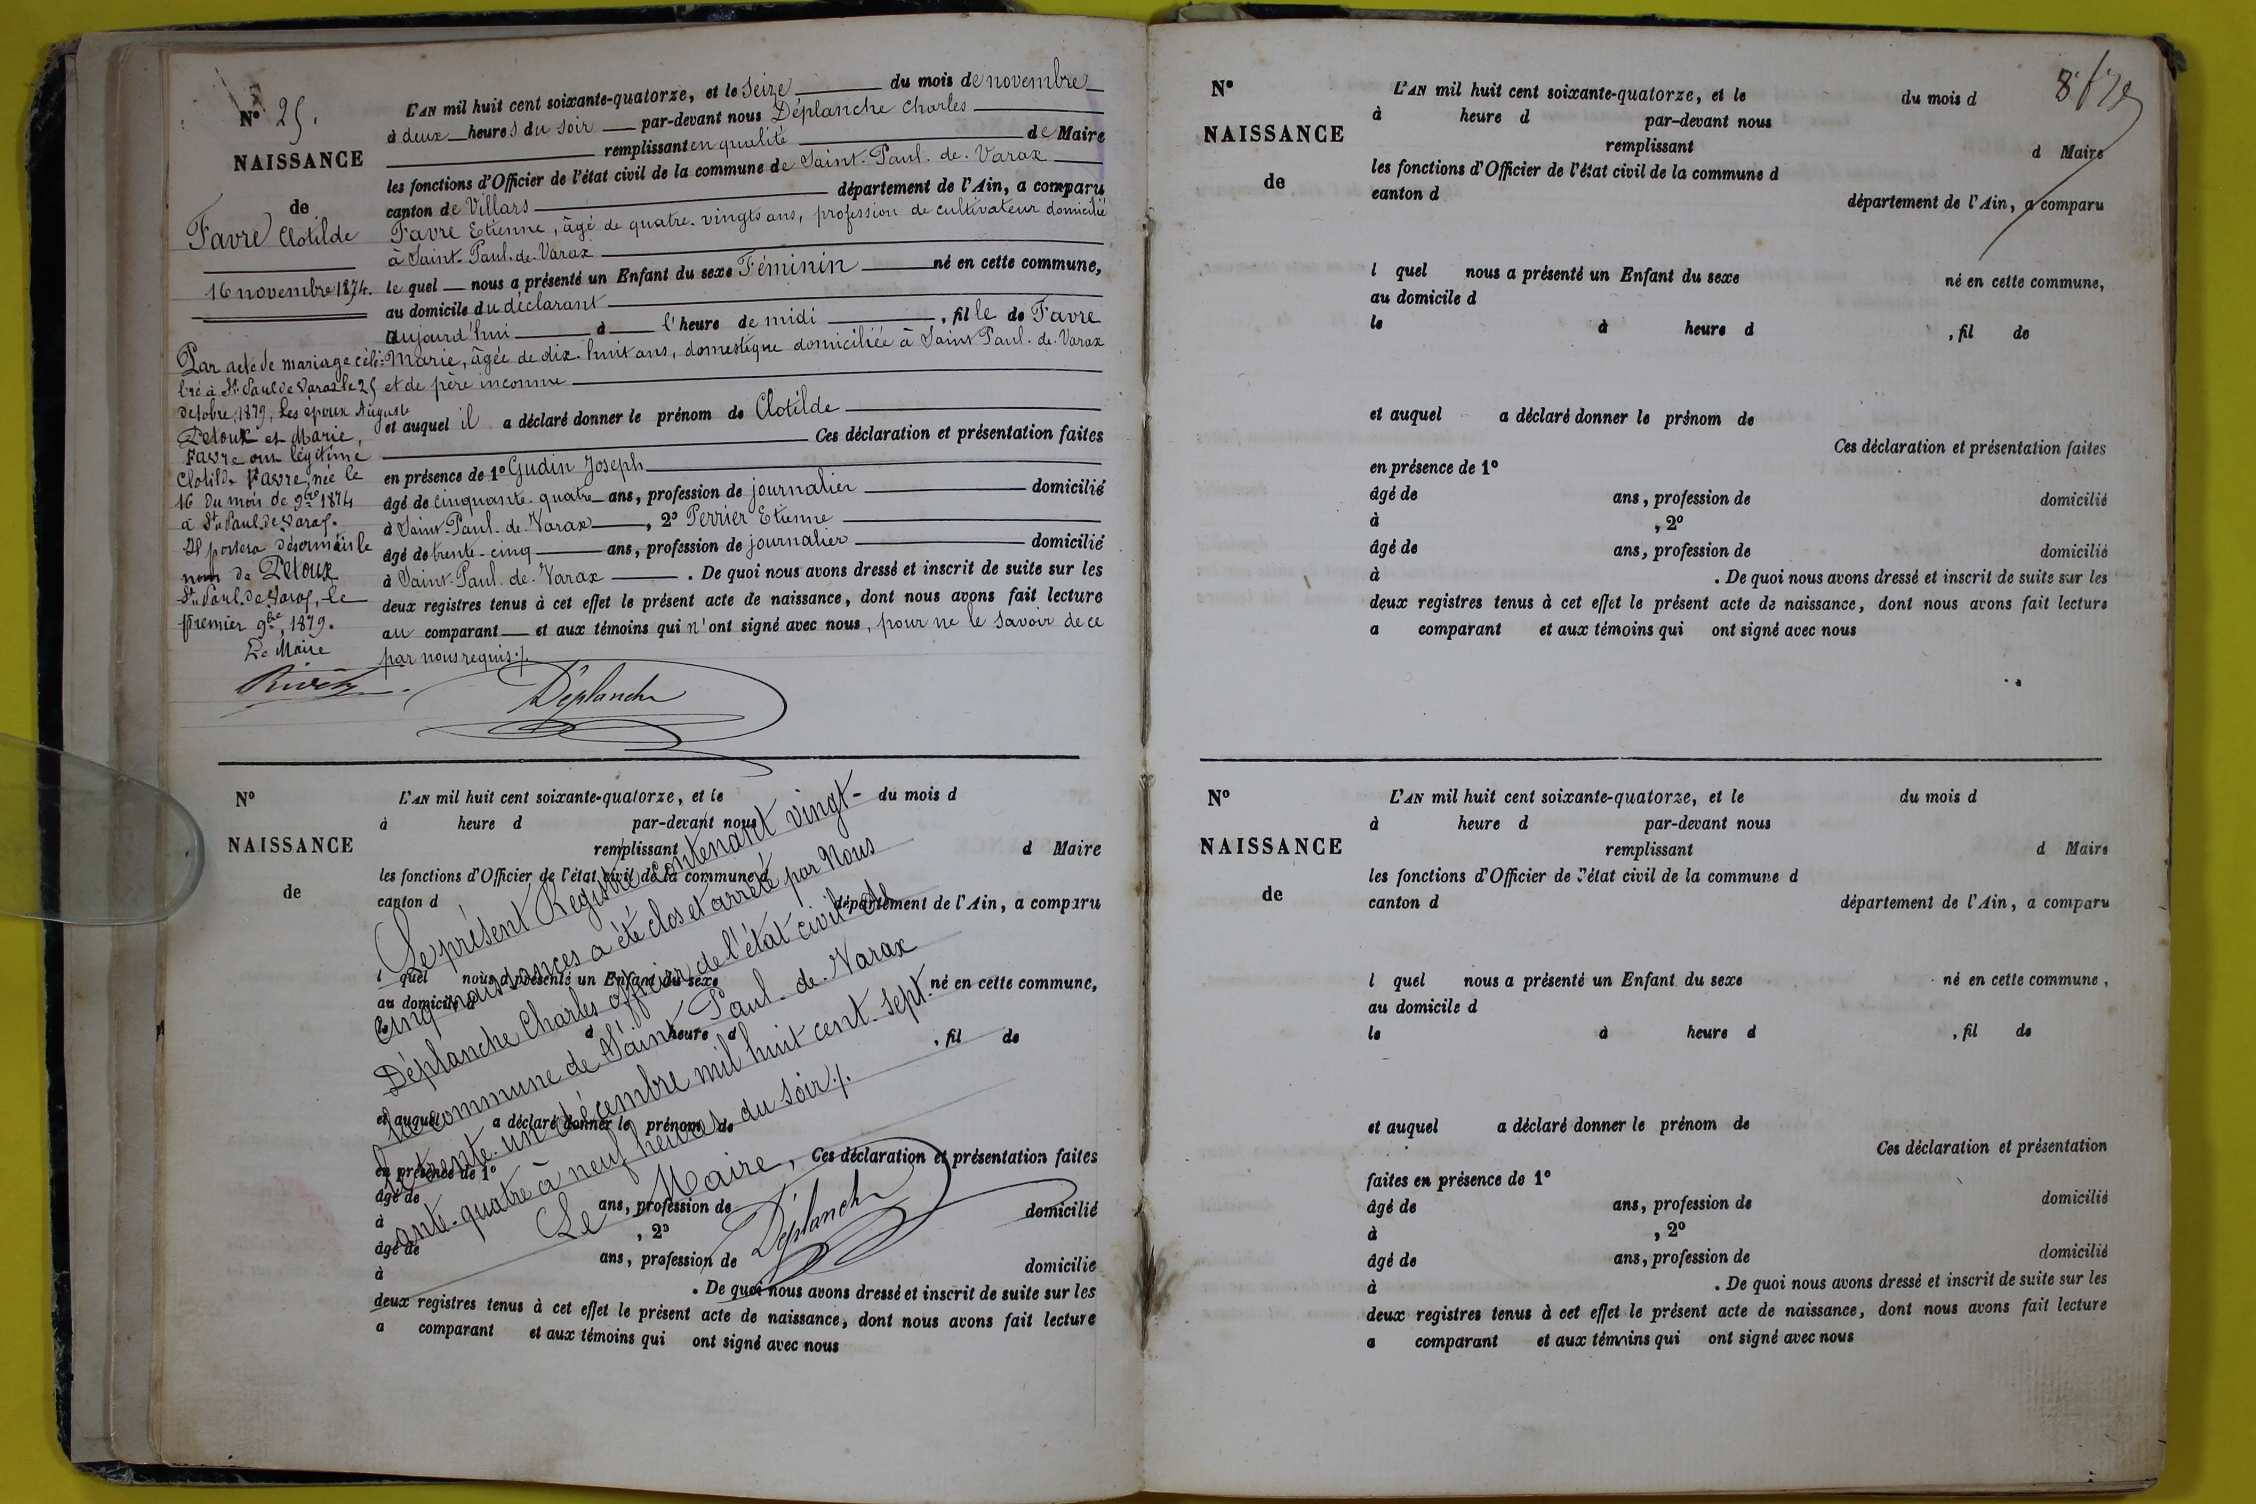 N° 25.
NAISSANCE
de
Favre Clotilde
16 novembre 1874.
Par acte de mariage célé-
bré à St Paul de Varax le 25
octobre, 1879, Les époux Auguste
Petoux et Marie,
Favre ont légitimé
Clotilde Favre, née le
16 du mois de 9bre 1874
à St Paul de Varax.
Il portera désormais le
nom de Petoux
St Paul de Varax, le
premier 9bre, 1879.
Le Maire
L'AN mil huit cent soixante-quatorze, et le seize du mois de novembre
à deux heures du soir par-devant nous Déplanche Charles
remplissant en qualité de Maire
les fonctions d'Officier de l'état civil de la commune de Saint-Paul-de-Varax
canton de Villars département de l'Ain, a comparu
Favre Etienne, âgé de quatre-vingts ans, profession de cultivateur domicilié
à Saint-Paul-de-Varax
le quel nous a présenté un Enfant du sexe Féminin né en cette commune,
au domicile du déclarant
aujourd'hui à l'heure de midi, fille de Favre
Marie, âgée de dix-huit ans, domestique domiciliée à Saint Paul-de-Varax
et de père inconnu
et auquel il a déclaré donner le prénom de Clotilde
Ces déclaration et présentation faites
en présence de 1° Gudin Joseph
âgé de cinquante-quatre ans, profession de journalier domicilié
à Saint-Paul-de-Varax, 2° Perrier Etienne
âgé de trente-cinq ans, profession de journalier domicilié
à Saint-Paul-de-Varax. De quoi nous avons dressé et inscrit de suite sur les
deux registres tenus à cet effet le présent acte de naissance, dont nous avons fait lecture
au comparant et aux témoins qui n'ont signé avec nous, pour ne le savoir de ce
par nous requis./.
Déplanche
N°
NAISSANCE
de
L'AN mil huit cent soixante-quatorze, et le du mois d
à heure d par-devant nous
remplissant d Maire
les fonctions d'Officier de l'état civil de la commune d
canton d département de l'Ain, a comparu
l quel nous a présenté un Enfant du sexe né en cette commune,
au domicile d
le à heure d , fil de
et auquel a déclaré donner le prénom de
Ces déclaration et présentation faites
en présence de 1°
âgé de ans, profession de domicilié
à , 2°
âgé de ans, profession de domicilié
à . De quoi nous avons dressé et inscrit de suite sur les
deux registres tenus à cet effet le présent acte de naissance, dont nous avons fait lecture
a comparant et aux témoins qui ont signé avec nous
Le présent Registre contenant vingt-
cinq naissances a été clos et arrêté par Nous
Déplanche Charles officier de l'état civil de
la commune de Saint Paul-de-Varax
le trente-un décembre mil huit cent-sept-
ante-quatre à neuf heures du soir./.
Le Maire,
Déplanche
N°
NAISSANCE
de
L'AN mil huit cent soixante-quatorze, et le du mois d
à heure d par-devant nous
remplissant d Maire
les fonctions d'Officier de l'état civil de la commune d
canton d département de l'Ain, a comparu
l quel nous a présenté un Enfant du sexe né en cette commune,
au domicile d
le à heure d , fil de
et auquel a déclaré donner le prénom de
Ces déclaration et présentation faites
en présence de 1°
âgé de ans, profession de domicilié
à , 2°
âgé de ans, profession de domicilié
à . De quoi nous avons dressé et inscrit de suite sur les
deux registres tenus à cet effet le présent acte de naissance, dont nous avons fait lecture
a comparant et aux témoins qui ont signé avec nous
N°
NAISSANCE
de
L'AN mil huit cent soixante-quatorze, et le du mois d
à heure d par-devant nous
remplissant d Maire
les fonctions d'Officier de l'état civil de la commune d
canton d département de l'Ain, a comparu
l quel nous a présenté un Enfant du sexe né en cette commune,
au domicile d
le à heure d , fil de
et auquel a déclaré donner le prénom de
Ces déclaration et présentation
faites en présence de 1°
âgé de ans, profession de domicilié
à , 2°
âgé de ans, profession de domicilié
à . De quoi nous avons dressé et inscrit de suite sur les
deux registres tenus à cet effet le présent acte de naissance, dont nous avons fait lecture
a comparant et aux témoins qui ont signé avec nous